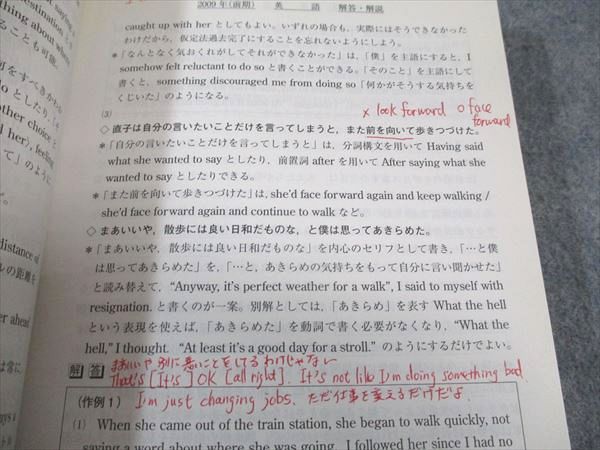 2009年(前期) 英 語 解答・解説
caught up with her としてもよい。いずれの場合も、実際にはそうできなかった
わけだから、仮定法過去完了にすることを忘れないようにしよう。
*「なんとなく気おくれがしてそれができなかった」は、「僕」を主語にすると、I
somehow felt reluctant to do so と書くことができる。「そのこと」を主語にして
書くと、something discouraged me from doing so「何かがそうする気持ちを
くじいた」のようになる。
× look forward ○ face
forward
(3)
◇ 直子は自分の言いたいことだけを言ってしまうと、また前を向いて歩きつづけた。
*「自分の言いたいことだけを言ってしまうと」は、分詞構文を用いて Having said
what she wanted to say としたり、前置詞 after を用いて After saying what she
wanted to say としたりできる。
*「また前を向いて歩きつづけた」は, she'd face forward again and keep walking /
she'd face forward again and continue to walk など。
◇ まあいいや、散歩には良い日和だものな、と僕は思ってあきらめた。
*「まあいいや、散歩には良い日和だものな」を内心のセリフとして書き、「…と僕
は思ってあきらめた」を、「…と、あきらめの気持ちをもって自分に言い聞かせた」
と読み替えて, "Anyway, it's perfect weather for a walk", I said to myself with
resignation. と書くのが一案。別解としては、「あきらめ」を表す What the hell
という表現を使えば、「あきらめた」を動詞で書く必要がなくなり, "What the
hell," I thought. "At least it's a good day for a stroll." のようにするだけでよい。
まあいいや 別に悪いことをしてるわけじゃない
解 答 That's [It's] OK [all right]. It's not like I'm doing something bad.
(作例1) I'm just changing jobs. ただ仕事を変えるだけだよ.
(1) When she came out of the train station, she began to walk quickly, not
saying a word about where she was going. I followed her since I had